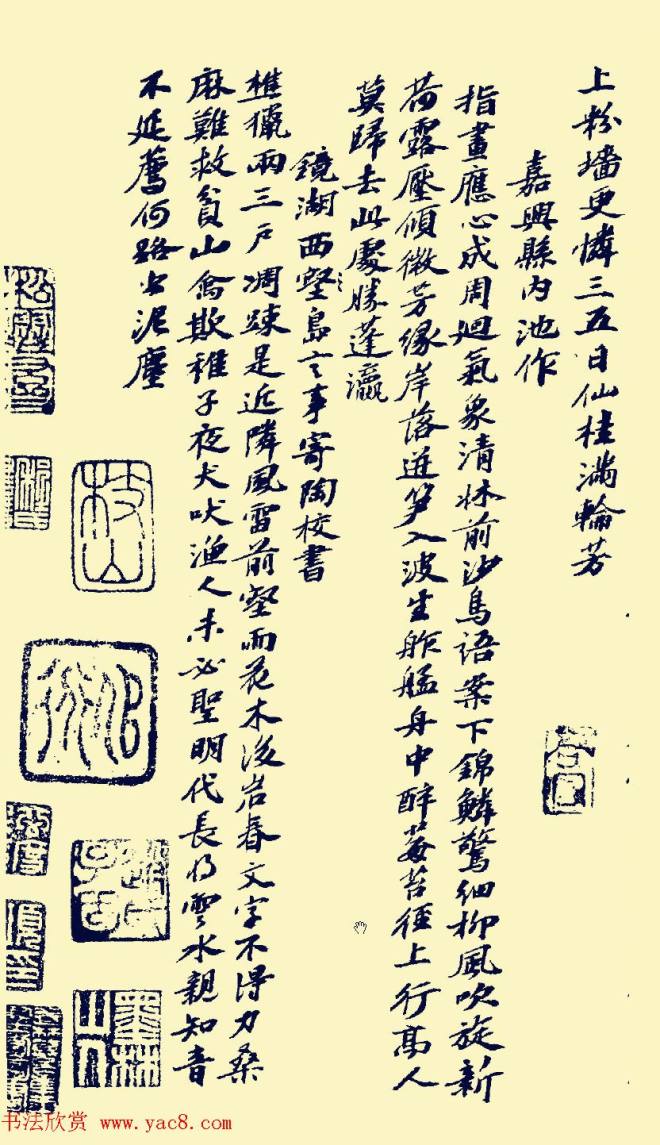 上粉墻更憐三五日仙桂滿輪芳
嘉興縣內池作
指畫應心成周迴氣象清牀前沙鳥語案下錦鱗驚細柳風吹旋新
荷露壓傾微芳緣岸落迸笋入波生舴艋舟中醉莓苔徑上行高人
莫歸去此處勝蓬瀛
鏡湖西壑島言事寄陶校書
樵獵兩三戶凋踈是近隣風雷前壑雨花木後岩春文字不得力桑
麻難救貧山禽欺稚子夜犬吠漁人未必聖明代長將雲水親知音
不延薦何路出泥塵
枝山
墨林山人
书法欣赏 www.yac8.com